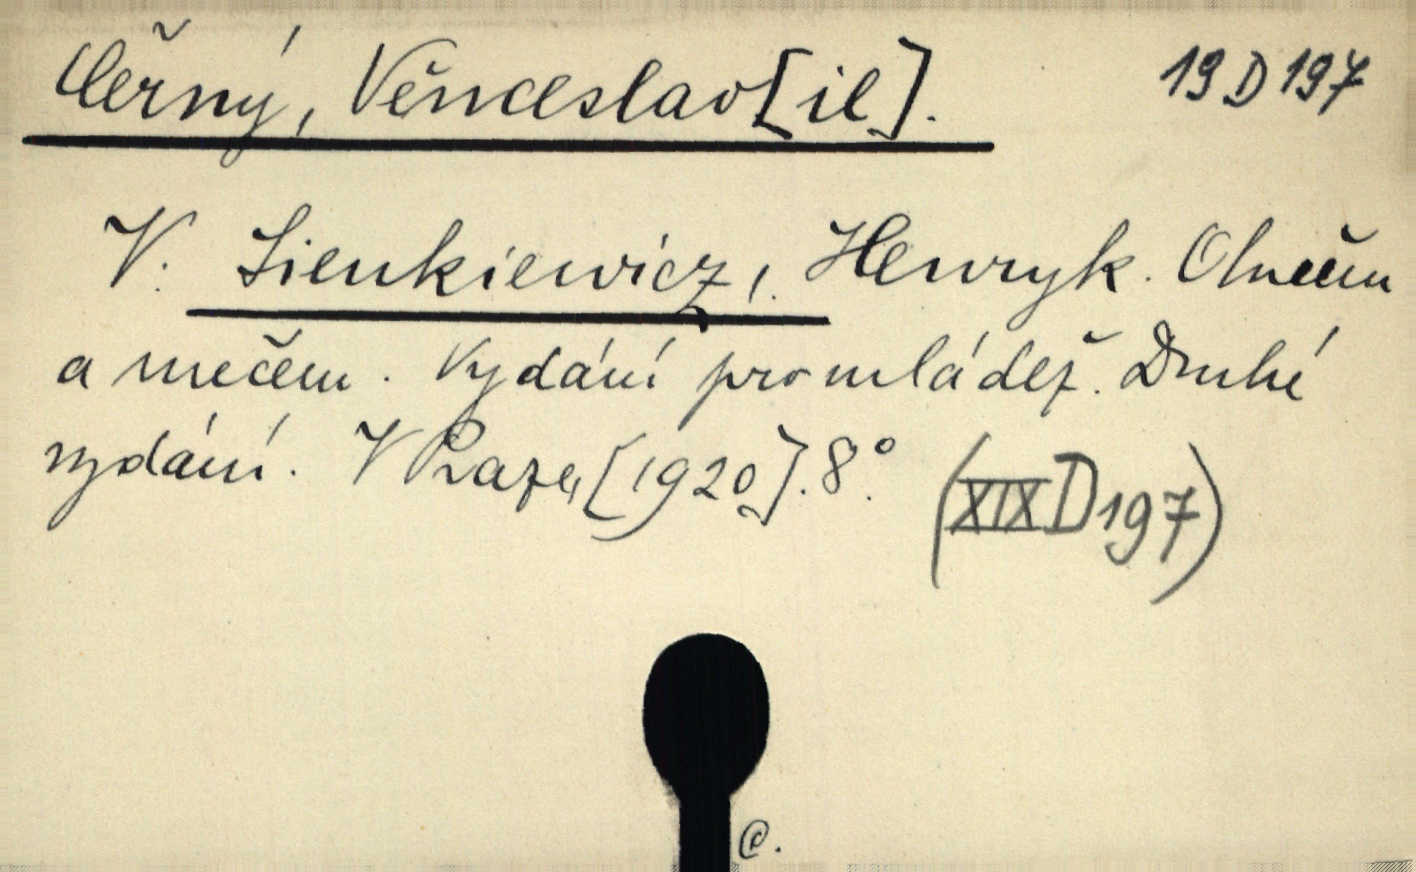 Černý, Věnceslav [il]. 19 D 197
V. Sienkiewicz, Henryk. Ohněm
a mečem. Vydání pro mládež. Druhé
vydání. V Praze, [1920]. 8°. (XIX D 197)
@.